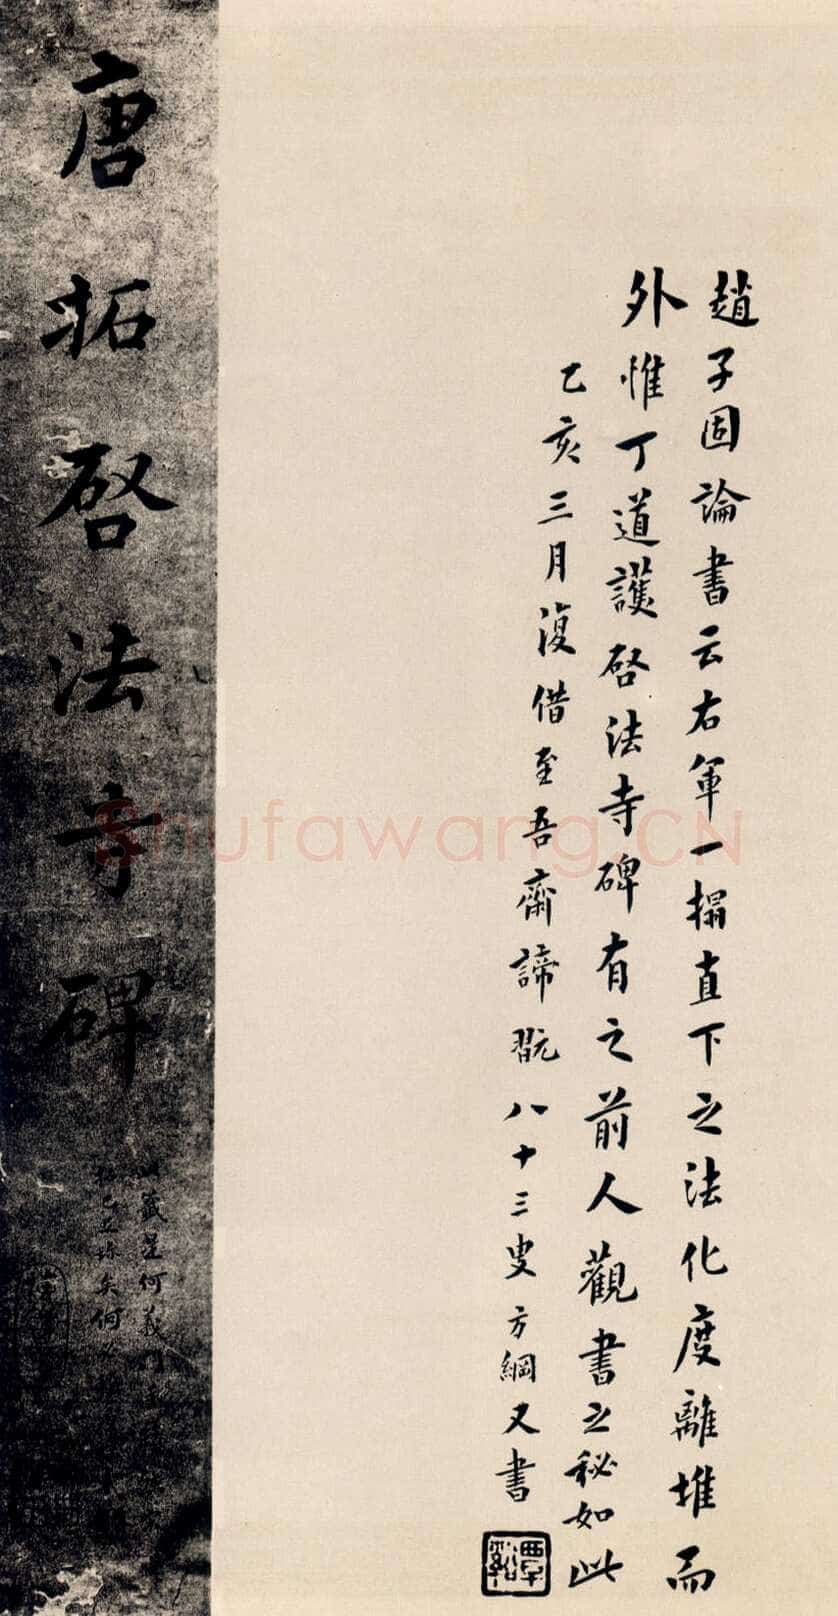 趙子固論書云右軍一搨直下之法化度離堆而
外惟丁道護啓法寺碑有之前人觀書之秘如此
乙亥三月復借至吾齋諦翫八十三叟方綱又書
覃谿
唐拓啓法寺碑
此籤是何義門
Shufawang.CN